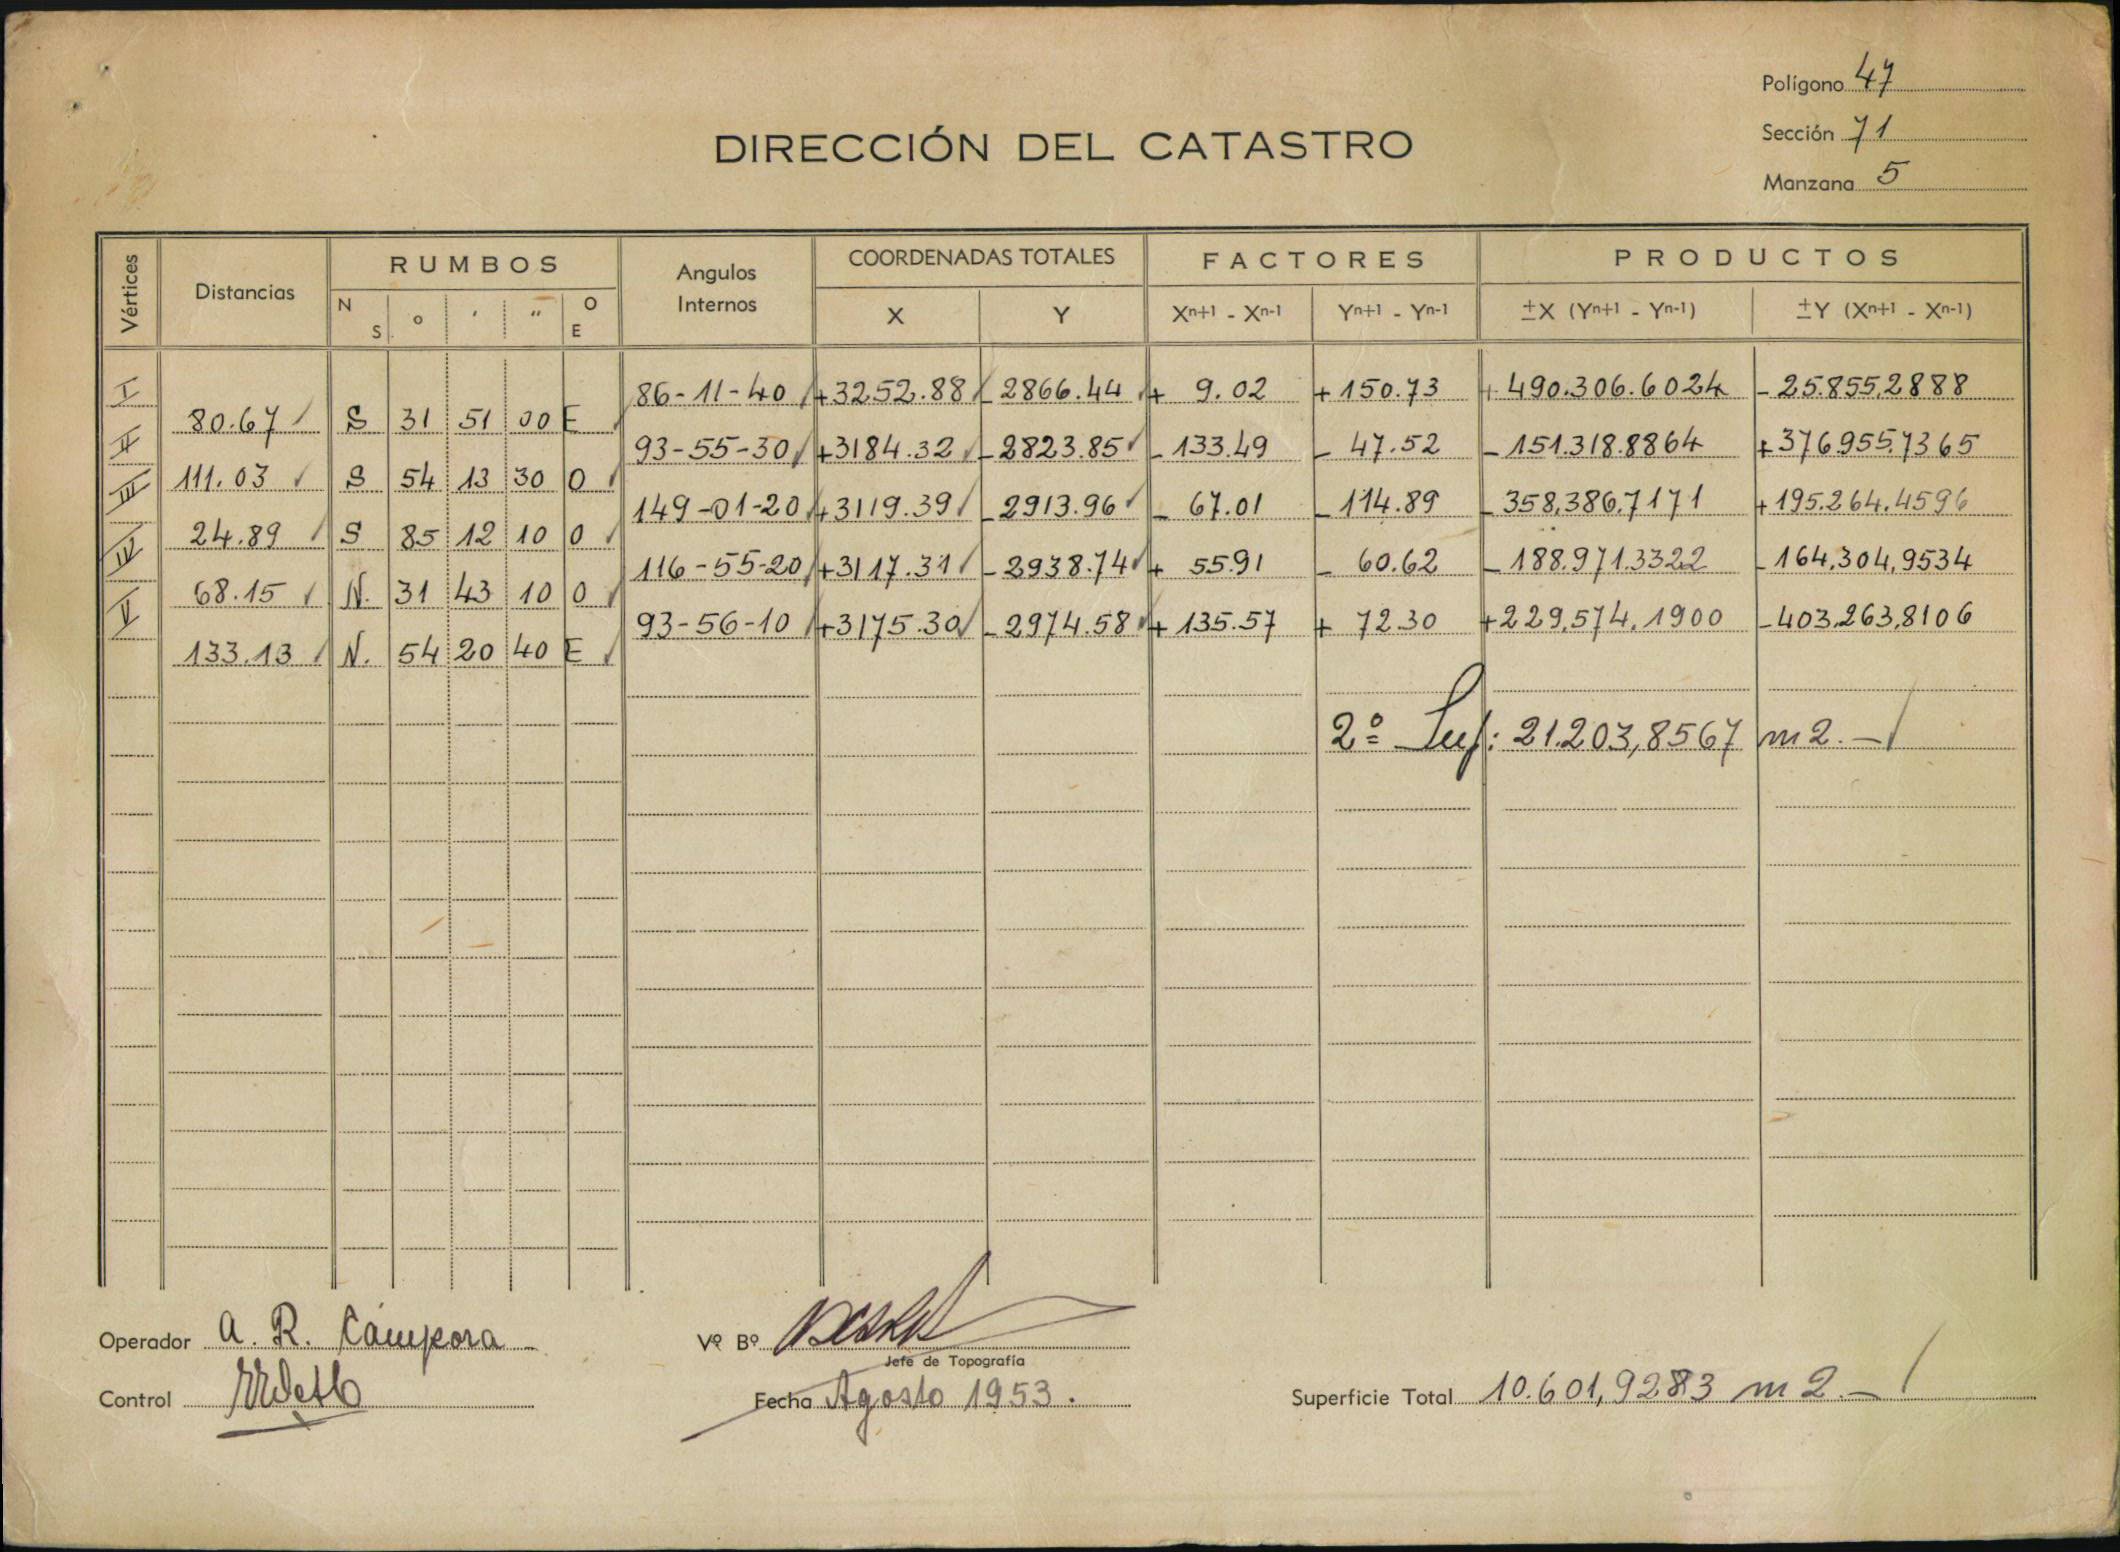 Polígono 47
DIRECCIÓN DEL CATASTRO
Sección 71
Manzana 5
Vértices Distancias RUMBOS Angulos Internos COORDENADAS TOTALES FACTORES PRODUCTOS
N S ° ' " O E X Y Xn+1 - Xn-1 Yn+1 - Yn-1 ±X (Yn+1 - Yn-1) ±Y (Xn+1 - Xn-1)
I 86-11-40 +3252.88 -2866.44 + 9.02 +150.73 +490.306.6024 -25.855,2888
80.67 S 31 51 00 E
II 93-55-30 +3184.32 -2823.85 -133.49 - 47.52 -151.318.8864 +376.955,7365
111.03 S 54 13 30 O
III 149-01-20 +3119.39 -2913.96 - 67.01 -114.89 -358,386,7171 +195.264.4596
24.89 S 85 12 10 O
IV 116-55-20 +3117.31 -2938.74 + 55.91 - 60.62 -188.971.3322 -164,304,9534
68.15 N. 31 43 10 O
V 93-56-10 +3175.30 -2974.58 + 135.57 + 72.30 +229,574.1900 -403,263,8106
133.13 N. 54 20 40 E
2º Sup: 21.203,8567 m2.-
Operador A. R. Cámpora Vº Bº
Jefe de Topografía
Control Fecha Agosto 1953. Superficie Total 10.601,9283 m2.-